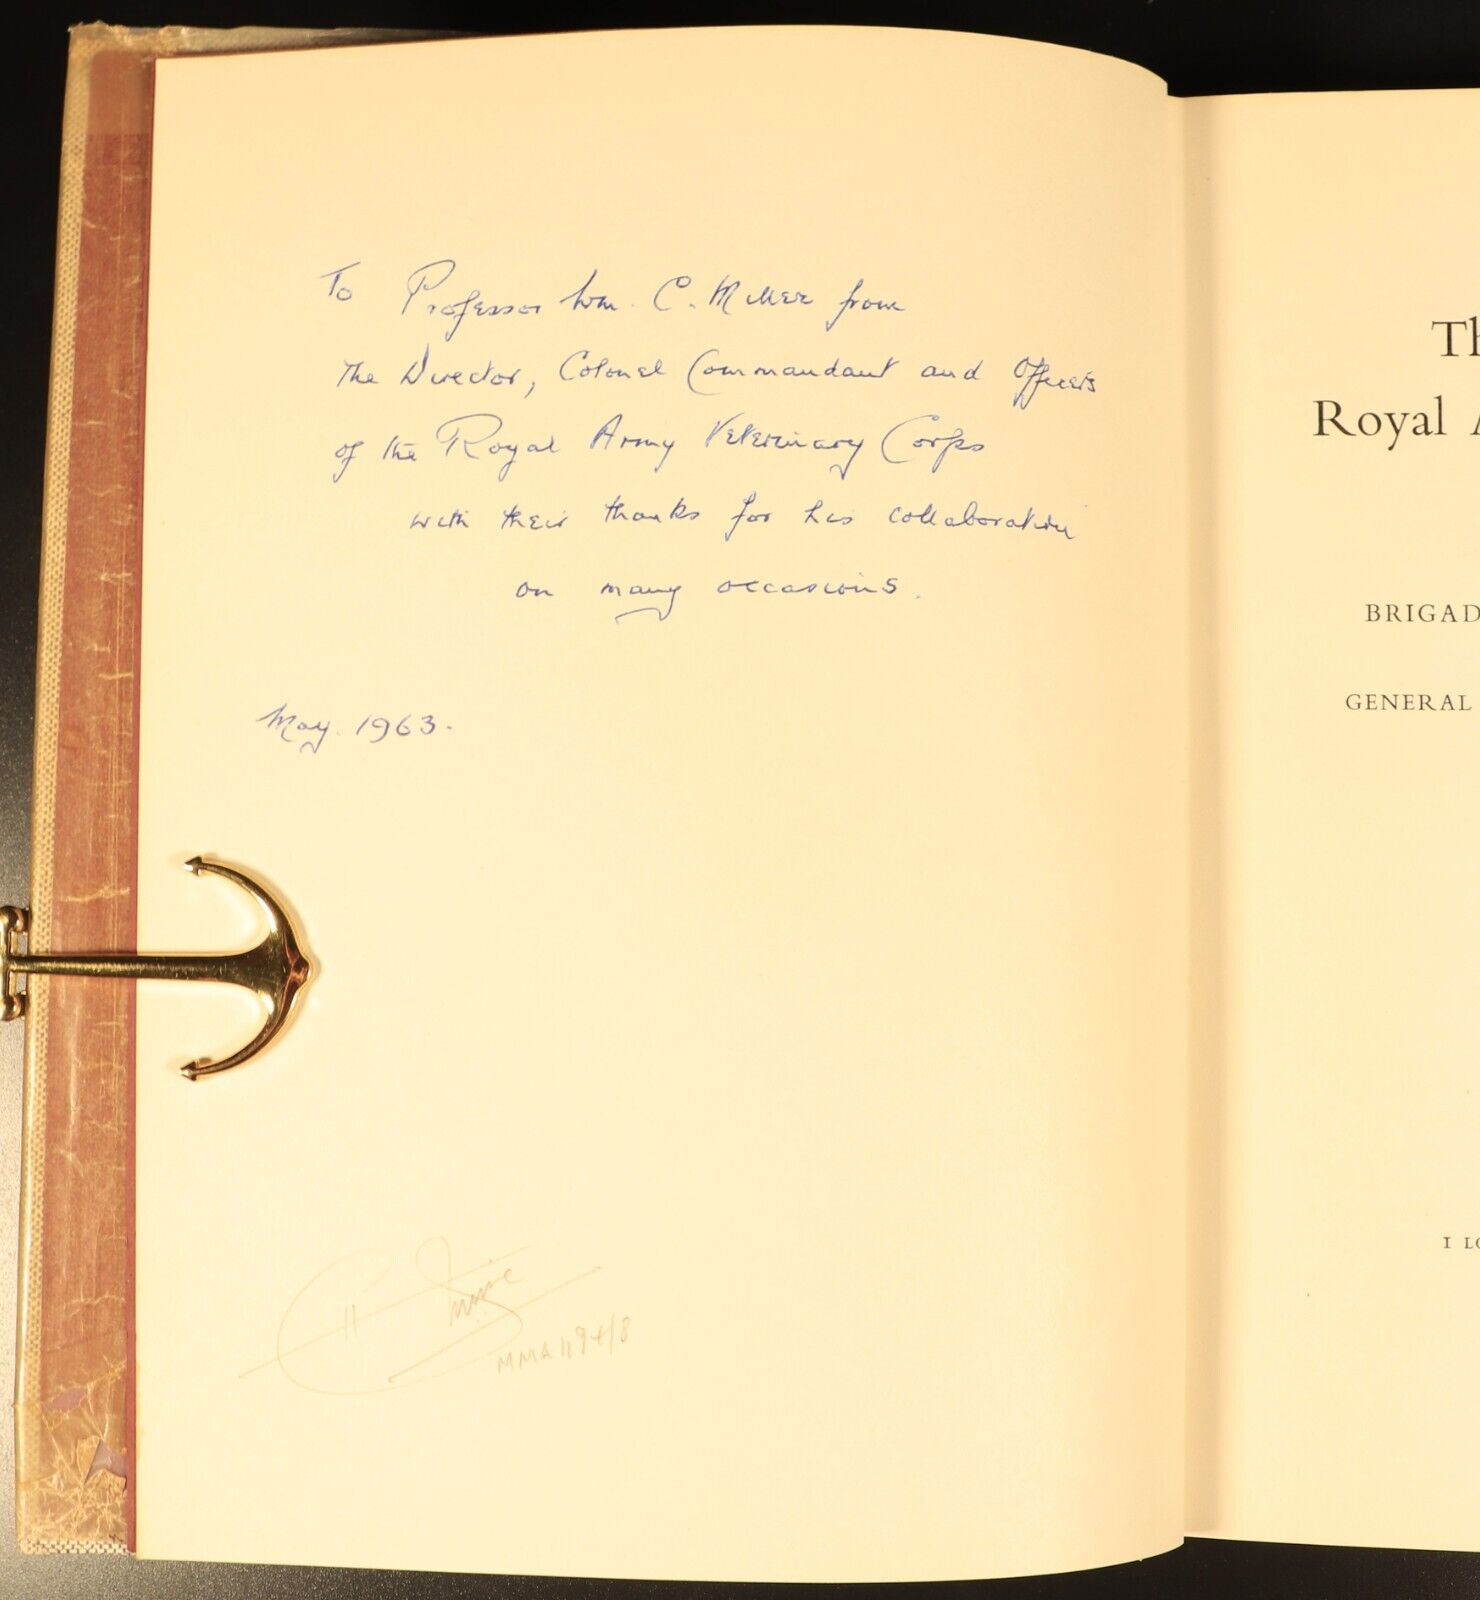 To Professor Wm. C. Miller from
The Director, Colonel Commandant and Officers
of the Royal Army Veterinary Corps
with their thanks for his collaboration
on many occasions.
May. 1963.
Th
Royal A
BRIGAD
GENERAL
I LO